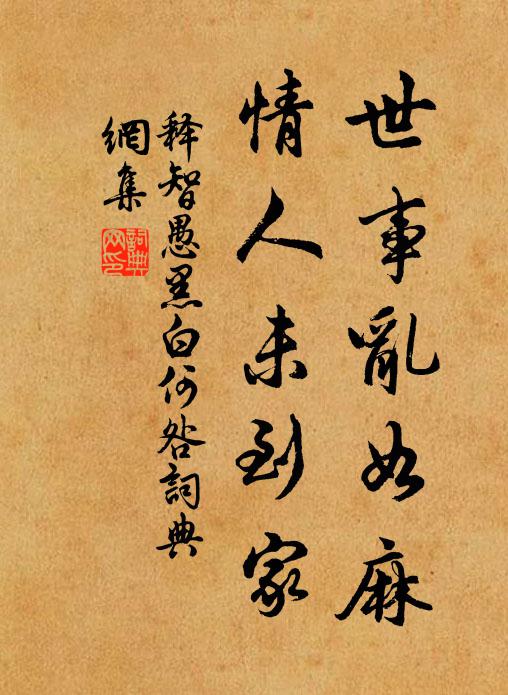 世事亂如麻
情人未到家
释智愚黑白何咎詞典
網集
詞典
網印